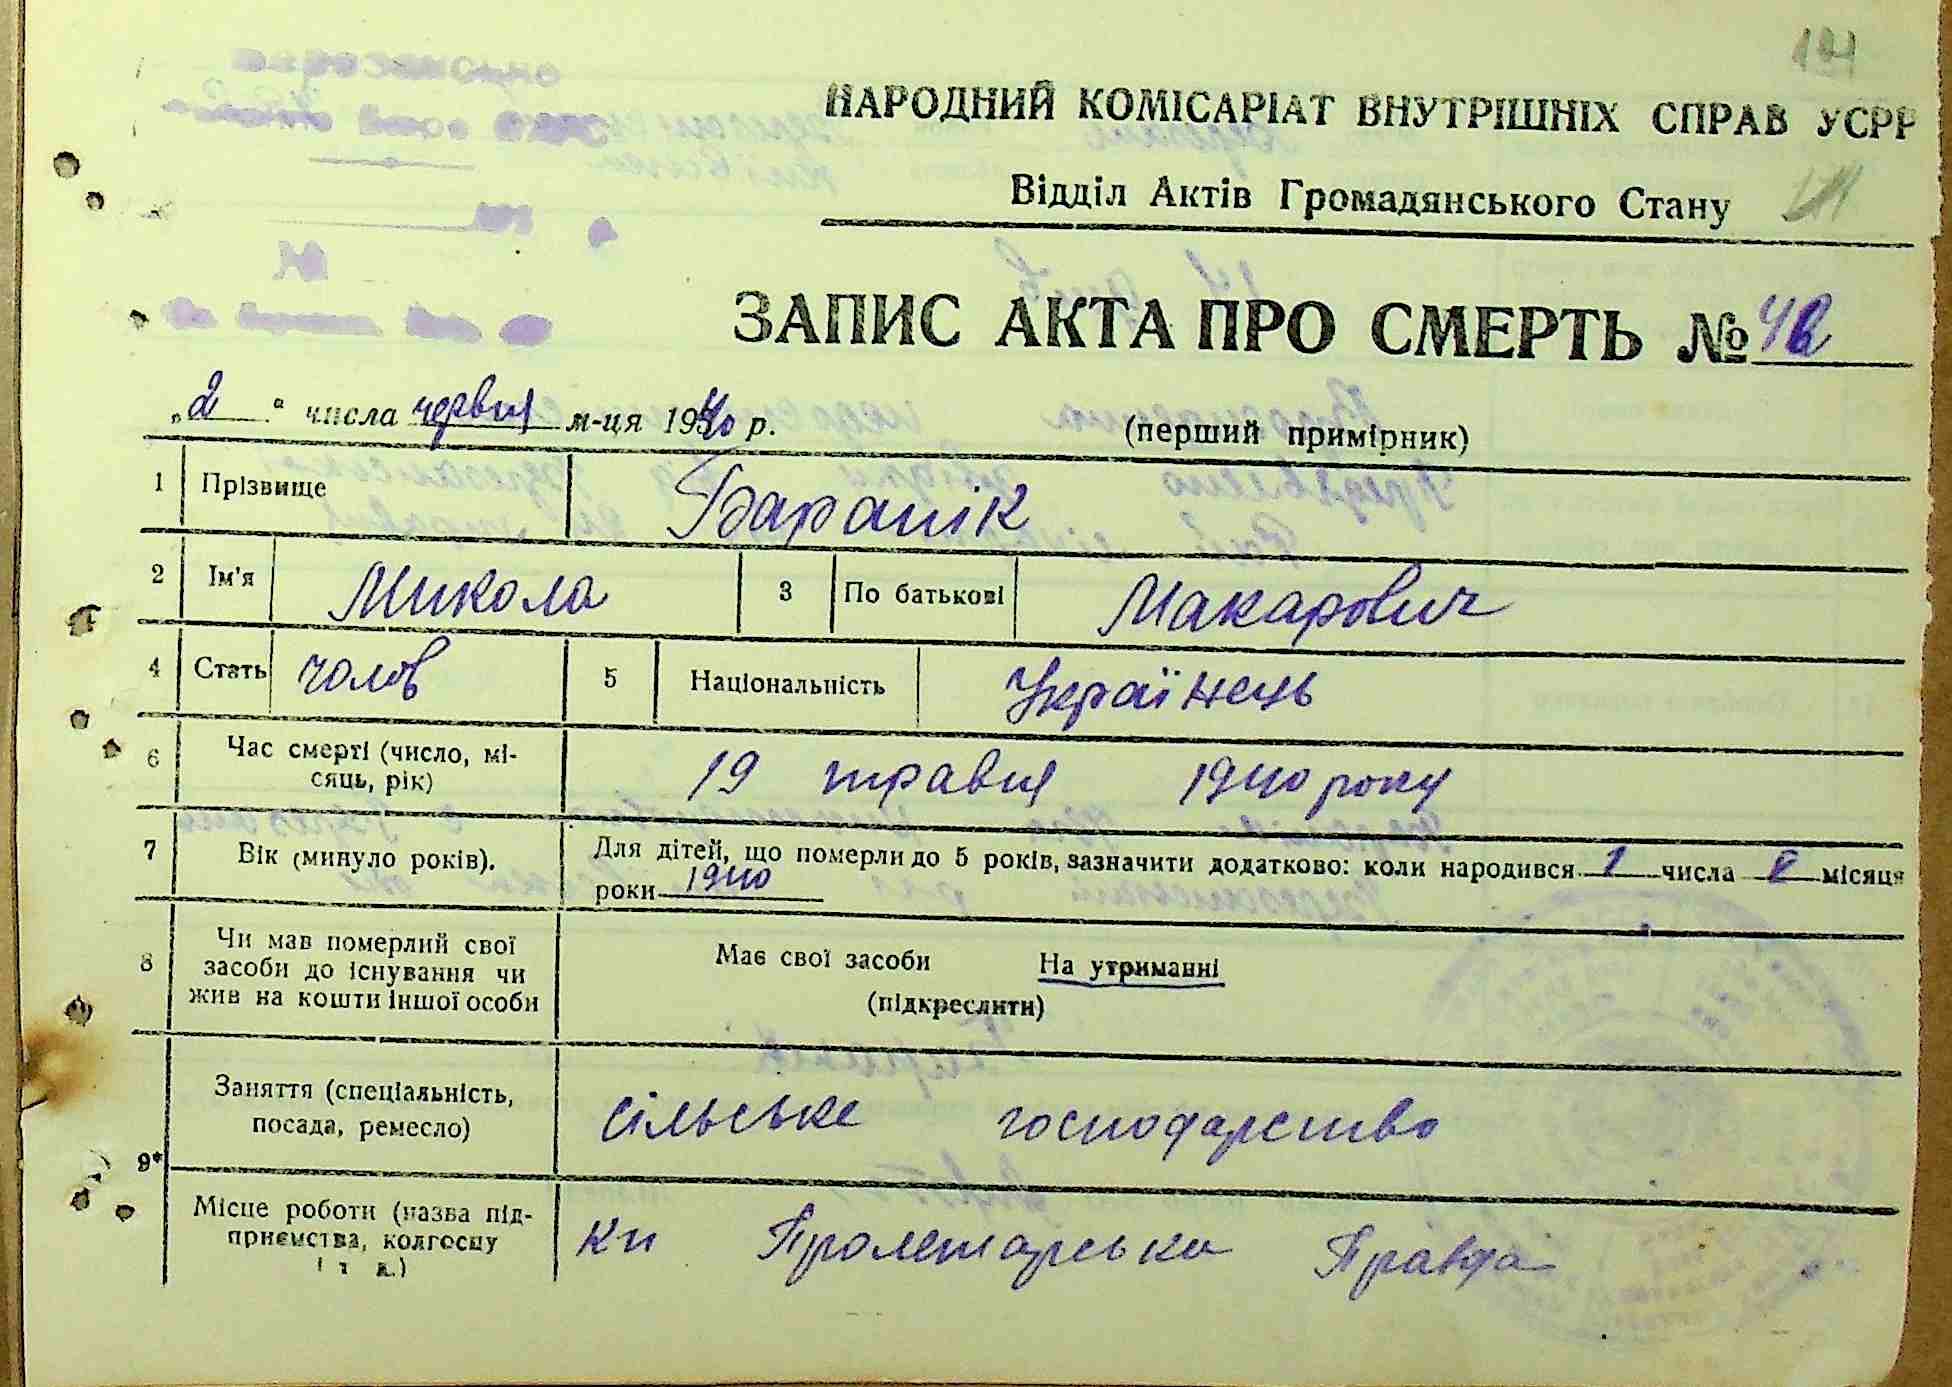 НАРОДНИЙ КОМІСАРІАТ ВНУТРІШНІХ СПРАВ УСРР
Відділ Актів Громадянського Стану
ЗАПИС АКТА ПРО СМЕРТЬ №
„2“ числа червня м-ця 1940 р. (перший примірник)
1 Прізвище Баранік
2 Ім'я Микола 3 По батькові Макарович
4 Стать чолов 5 Національність Українець
6 Час смерті (число, мі-
сяць, рік) 19 травня 1940 року
7 Вік (минуло років). Для дітей, що померли до 5 років, зазначити додатково: коли народився 1 числа V місяця
роки 1940
8 Чи мав померлий свої
засоби до існування чи
жив на кошти іншої особи
Має свої засоби На утриманні
(підкреслити)
9* Заняття (спеціальність,
посада, ремесло) сільське господарство
Місце роботи (назва під-
приємства, колгоспу
і т. д.) Кп Пролетарська Правда